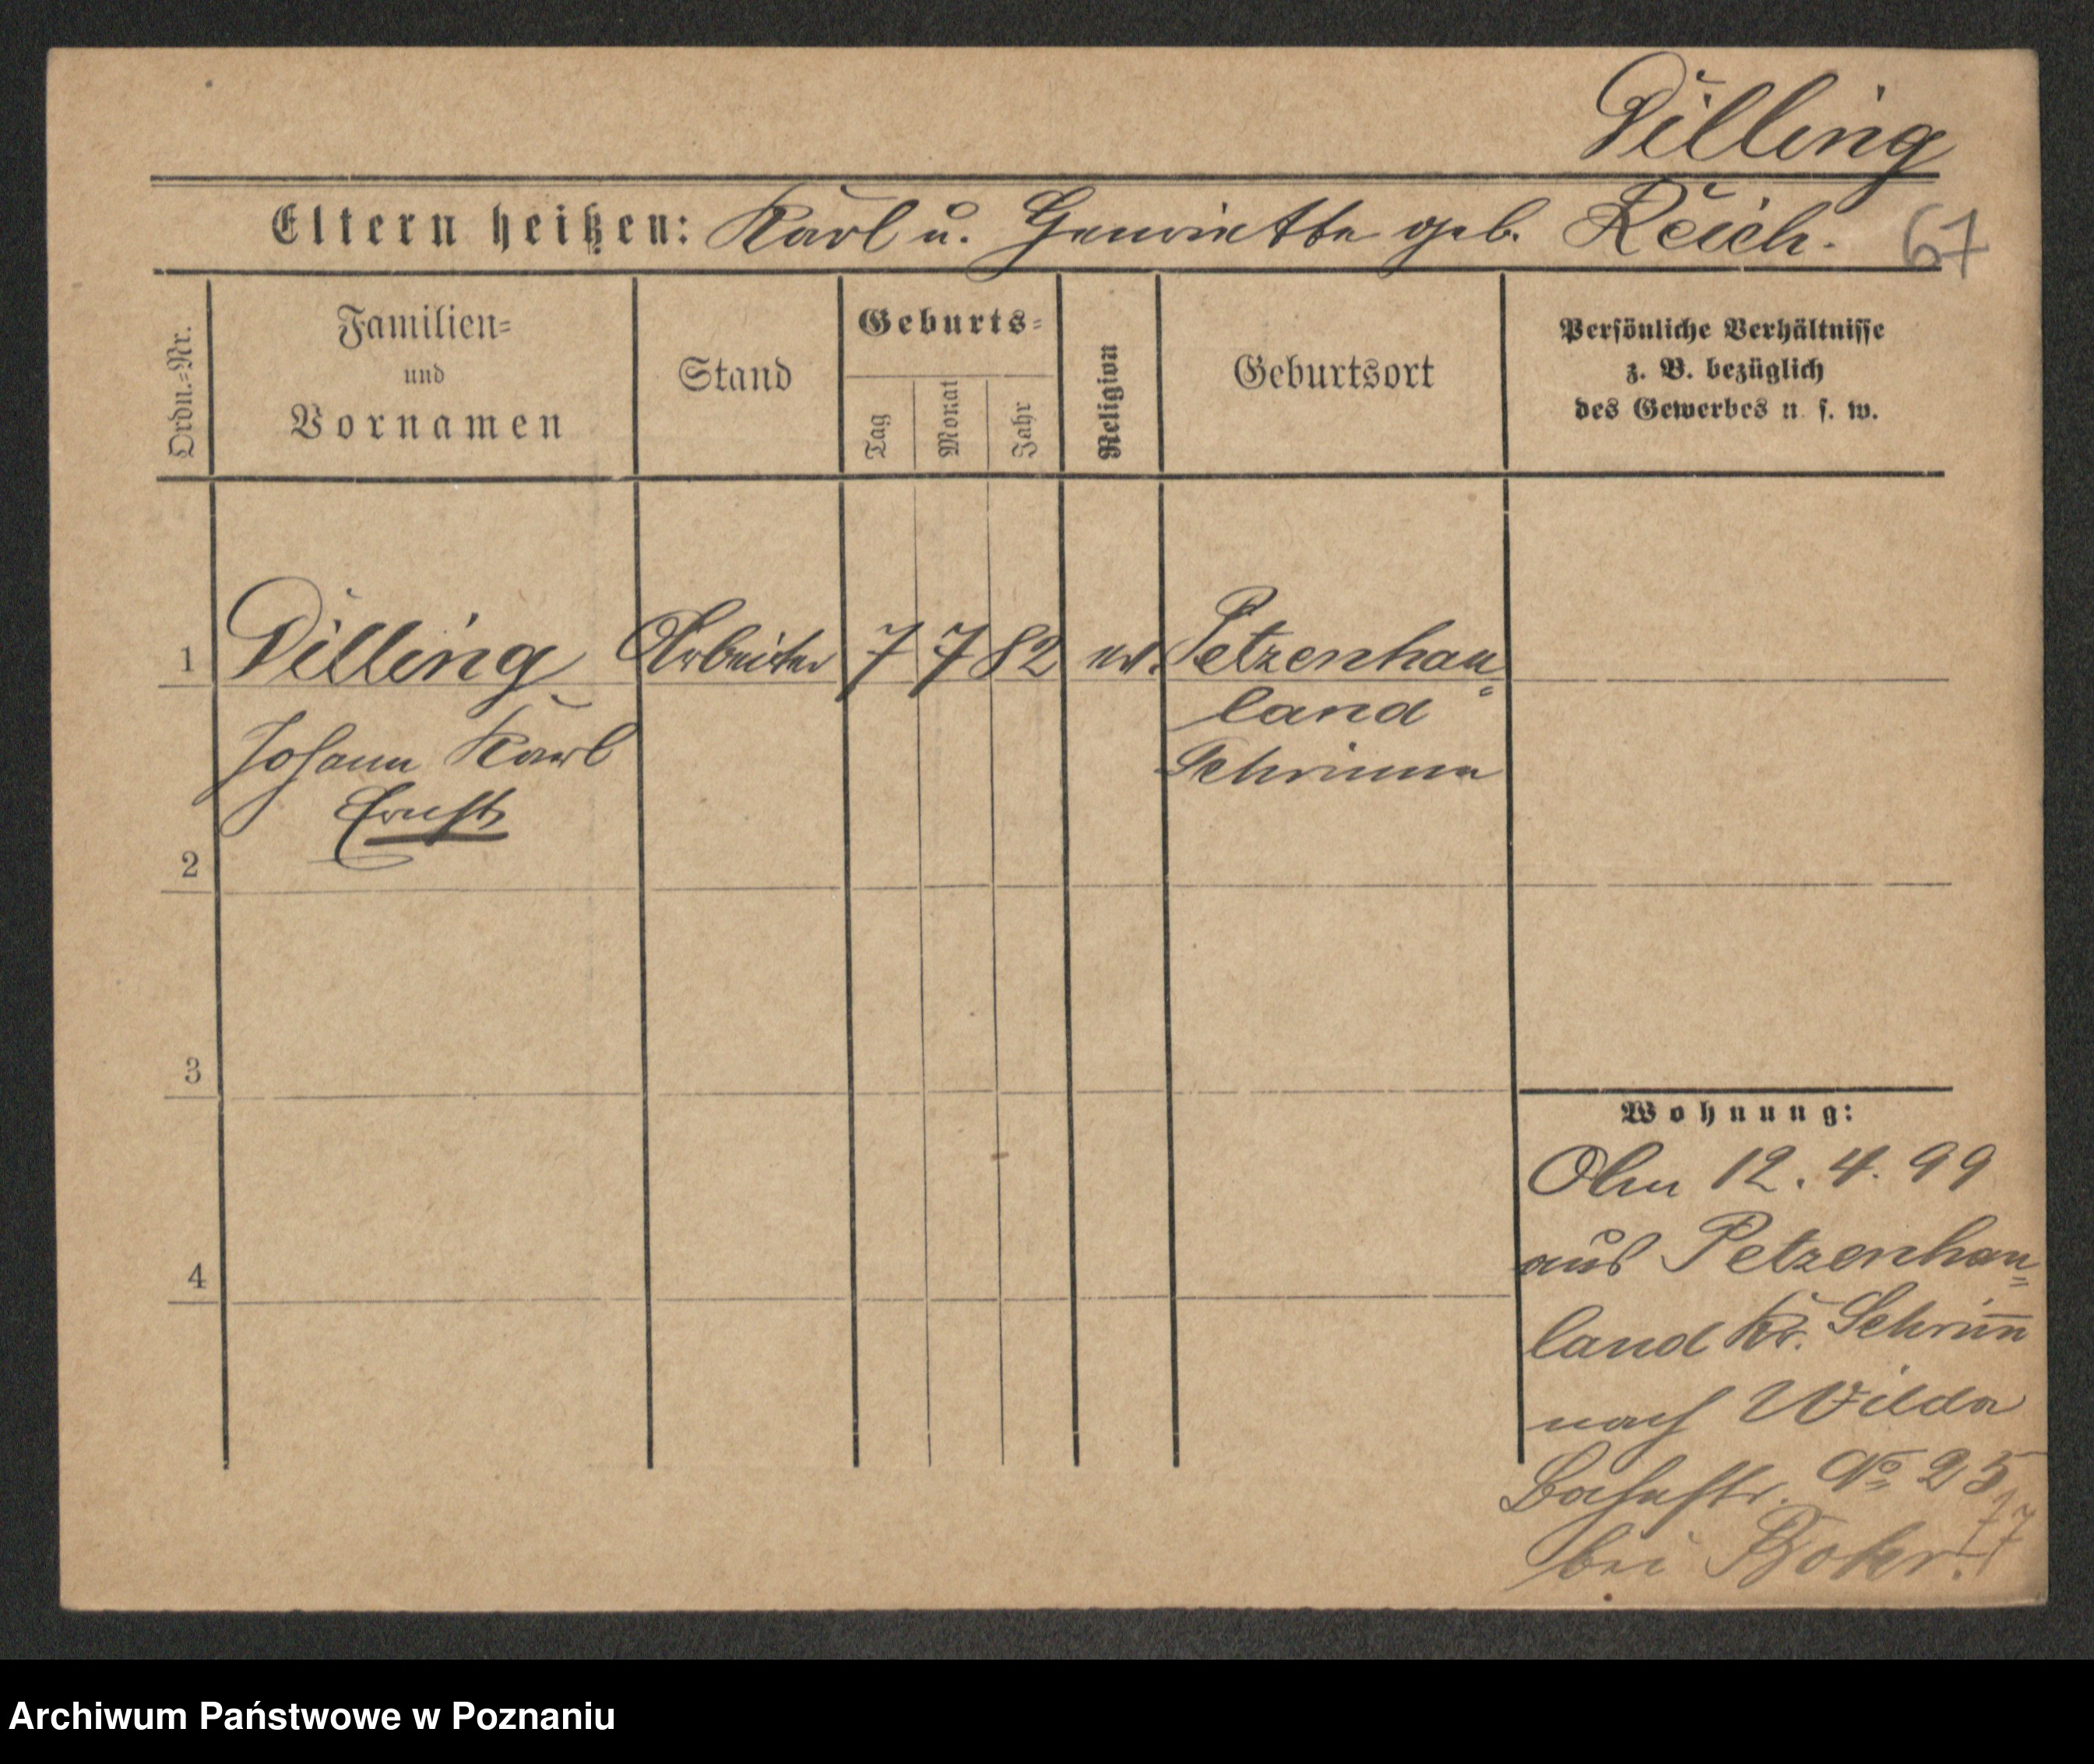 Dilling
Eltern heißen: Karl u. Henriette geb. Reich.
67
Ordn.=Nr.
Familien=
und
Vornamen
Stand
Geburts=
Tag
Monat
Jahr
Religion
Geburtsort
Persönliche Verhältnisse
z. B. bezüglich
des Gewerbes u. s. w.
1 Dilling Arbeiter 7 7 82 ev. Petzenhau=
land
Johann Karl Schrimm
Ernst
2
3
4
Wohnung:
12. 4. 99
aus Petzenhau=
land Kr. Schrim̅
nach Wilda
Bahnstr. No 25
bei
Archiwum Państwowe w Poznaniu